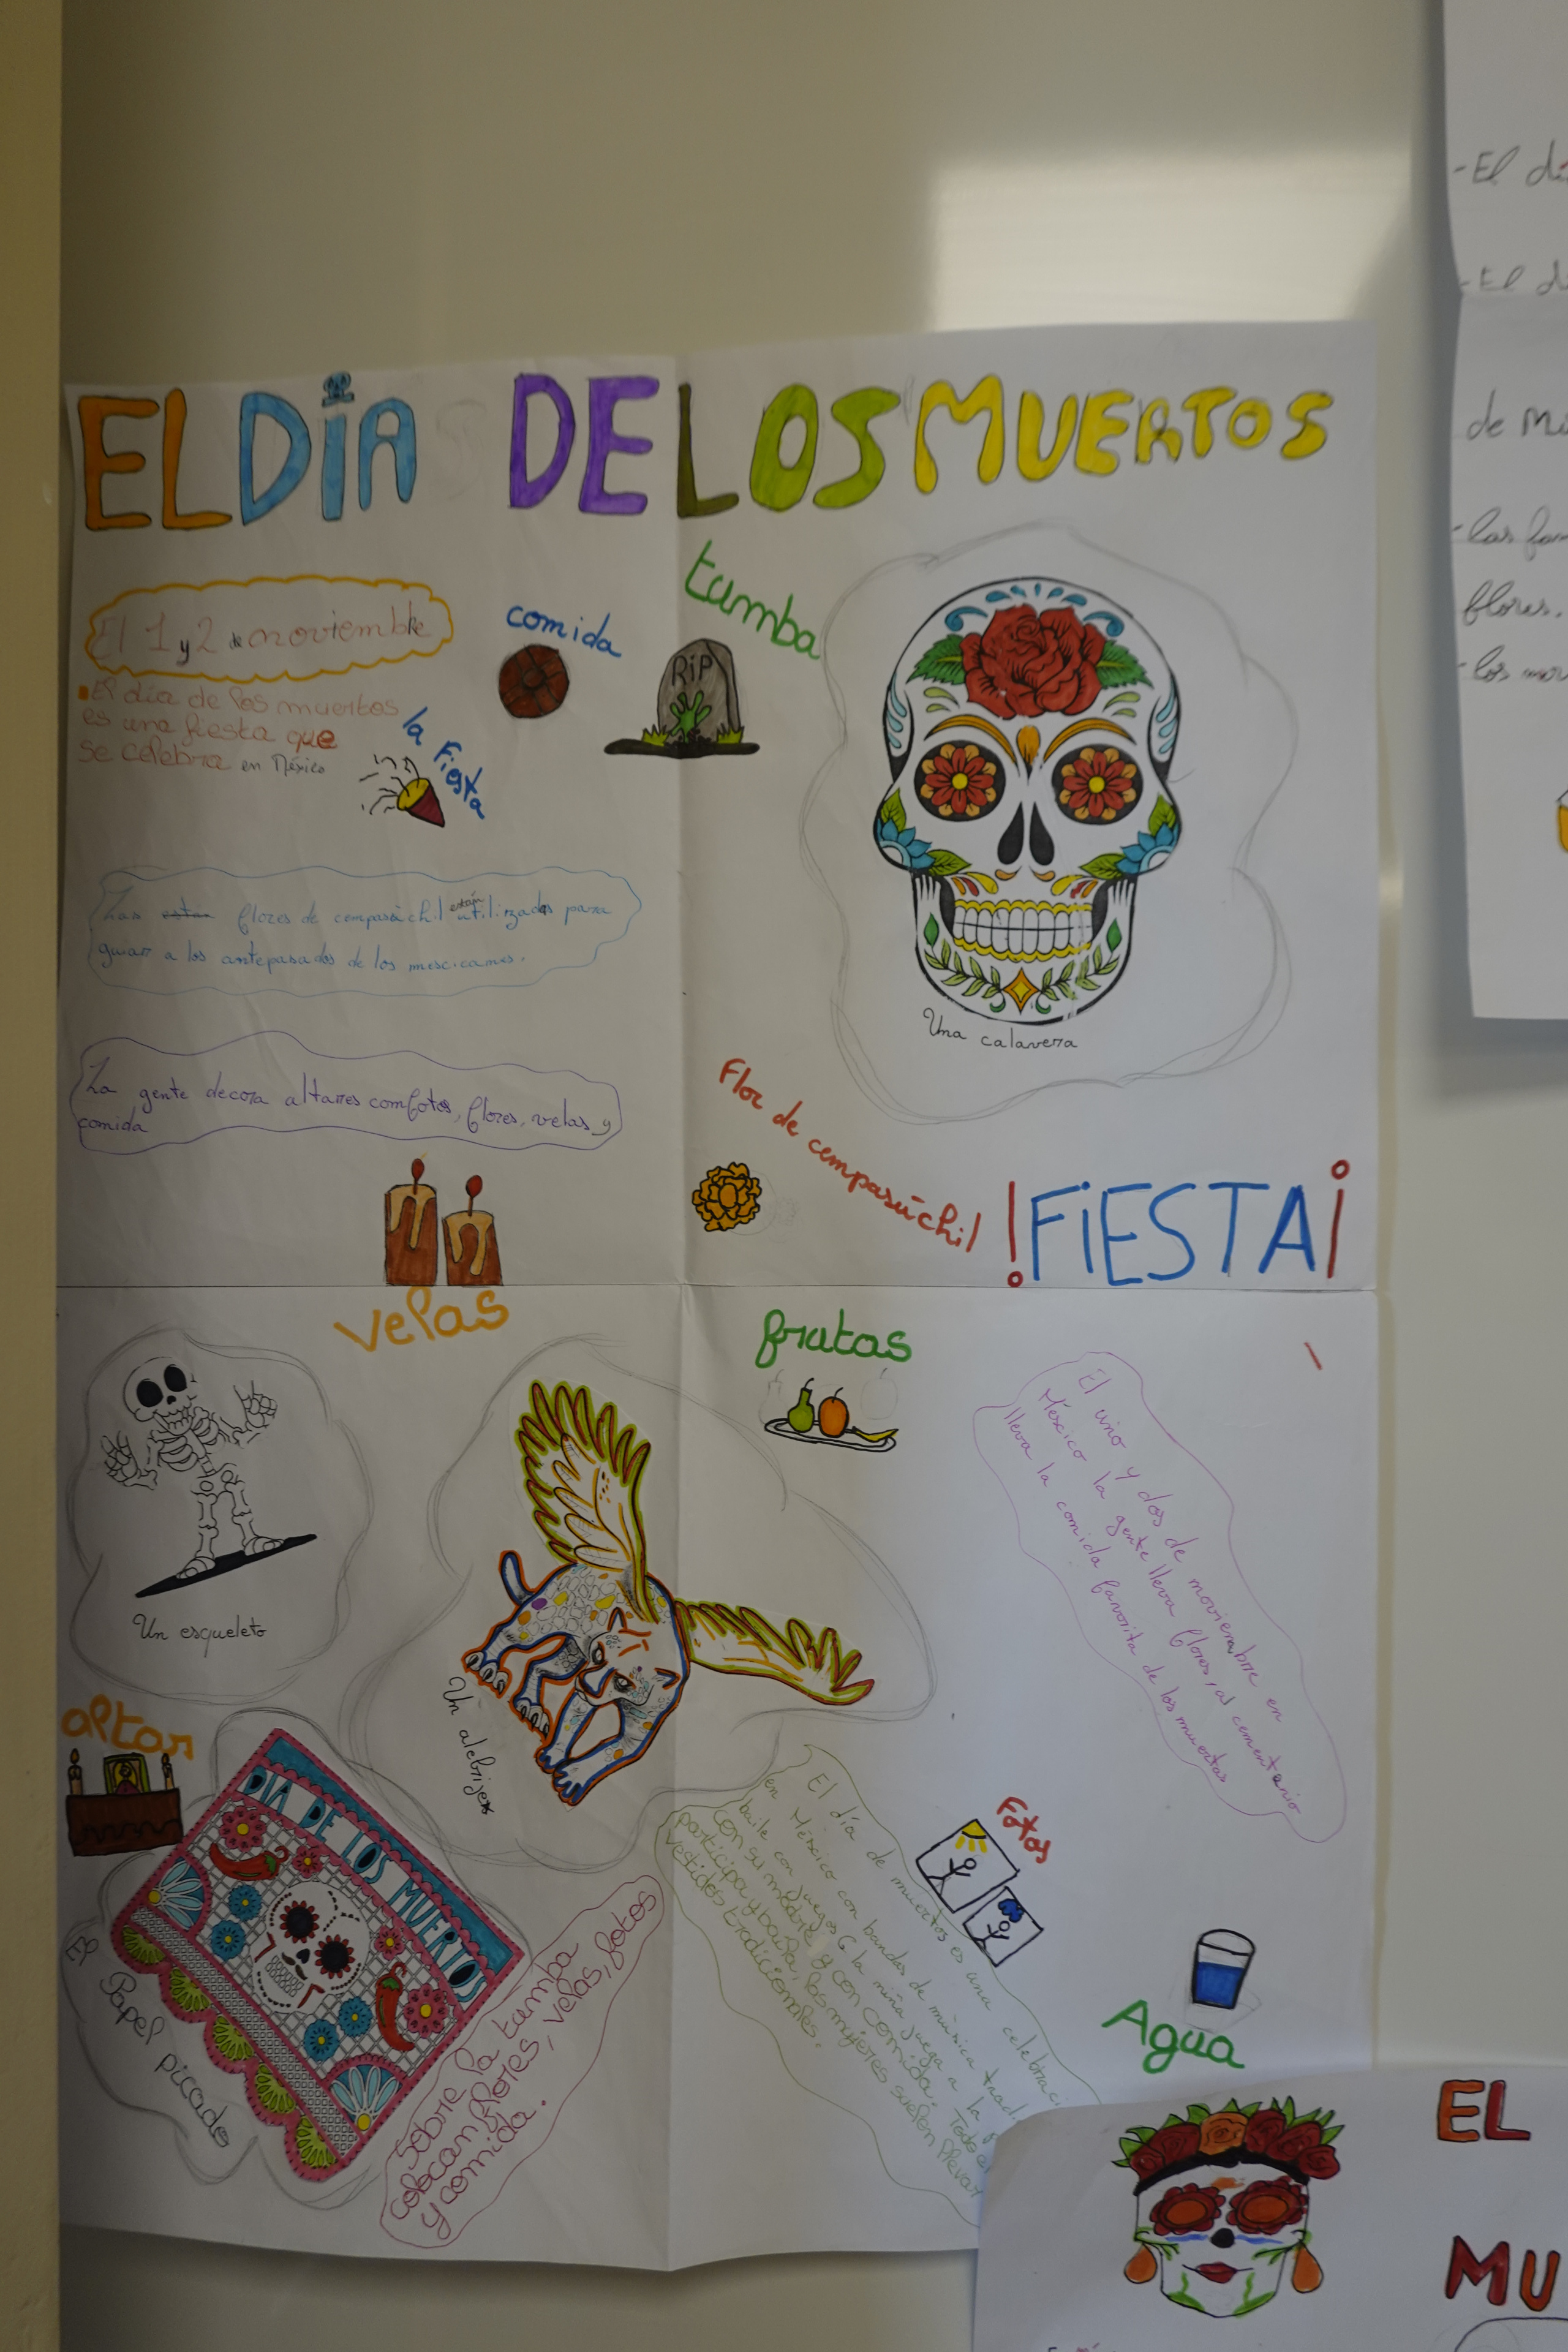 EL DÍA DE LOS MUERTOS
El 1 y 2 de noviembre
El día de los muertos
es una fiesta que
se celebra en México
la Fiesta
comida
tumba
RIP
Las flores de cempasúchil están utilizadas para
guiar a los antepasados de los mescicanos.
La gente decora altares com fotos, flores, velas y
comida
Una calavera
Flor de cempasúchil
!FiESTA¡
velas
frutas
Un esqueleto
Un alebrije
El uno y dos de noviembre en
Méscico la gente lleva flores, al cementario
lleva la comida favorita de los muertos
altar
DIA DE LOS MUERTOS
Papel picado
Sobre la tumba
colocan flores, velas, fotos
y comida.
El día de muertos es una celebraci
en Méscico con bandas de música tradi
baile con juegos
la niña juega a la
con su madre y con comida. Todo
participa y baila, las mujeres suelen llevar
vestidos tradicionales.
Fotos
Agua
-El dí
-El dí
de Mé
-las fam
flores.
-los mer
EL
MU